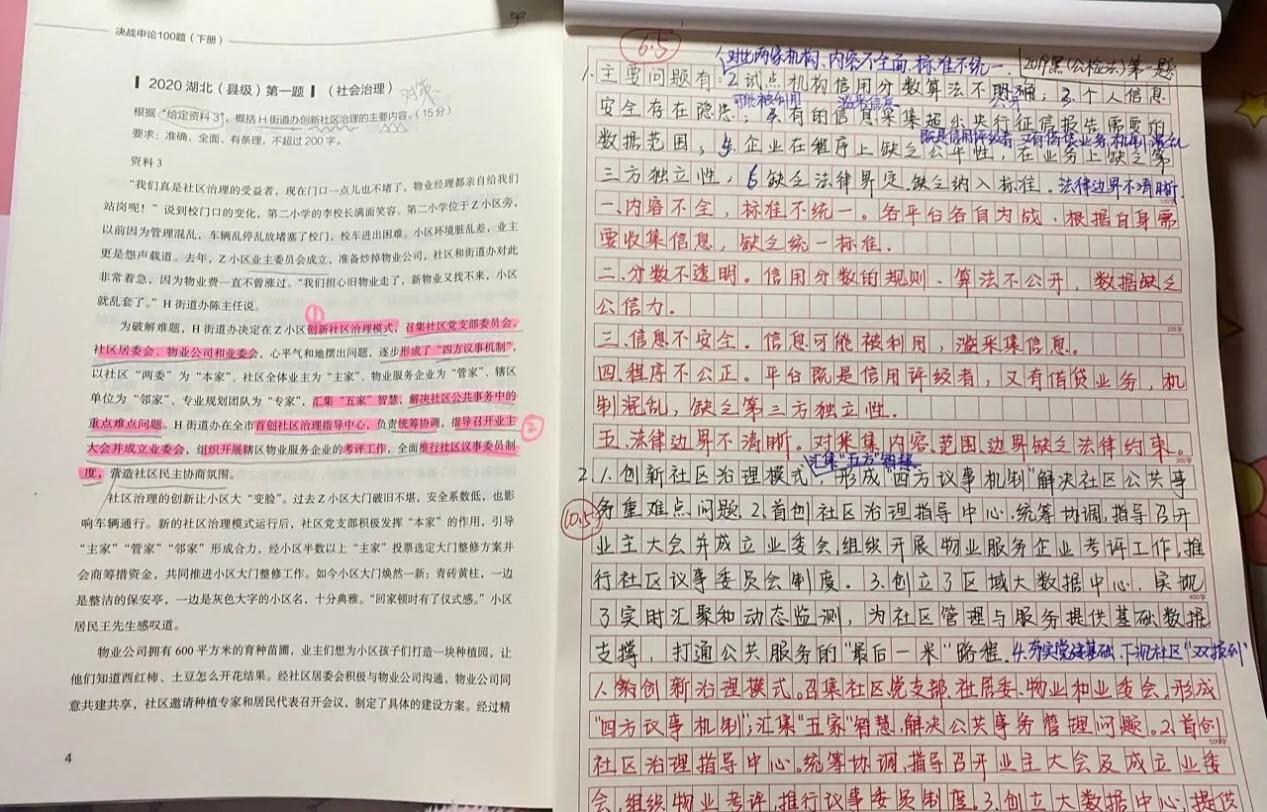 决战申论100题（下册）
2020 湖北（县级）第一题 （社会治理）
对策
根据"给定资料3"，概括H街道办创新社区治理的主要内容。（15分）
要求：准确、全面、有条理，不超过200字。
资料3
"我们真是社区治理的受益者，现在门口一点儿也不堵了，物业经理都亲自给我们
站岗呢！"说到校门口的变化，第二小学的李校长满面笑容。第二小学位于Z小区旁，
以前因为管理混乱，车辆乱停乱放堵塞了校门，校车进出困难。小区环境脏乱差，业主
更是怨声载道。去年，Z小区业主委员会成立，准备炒掉物业公司，社区和街道办对此
非常着急，因为物业费一直不曾涨过。"我们担心旧物业走了，新物业又找不来，小区
就乱套了。"H街道办陈主任说。
①
为破解难题，H街道办决定在Z小区创新社区治理模式，召集社区党支部委员会、
社区居委会、物业公司和业委会，心平气和地摆出问题，逐步形成了"四方议事机制"，
以社区"两委"为"本家"、社区全体业主为"主家"、物业服务企业为"管家"、辖区
单位为"邻家"、专业规划团队为"专家"，汇集"五家"智慧，解决社区公共事务中的
重点难点问题。H街道办在全市首创社区治理指导中心，负责统筹协调，指导召开业主
②
大会并成立业委会，组织开展辖区物业服务企业的考评工作，全面推行社区议事委员制
度，营造社区民主协商氛围。
社区治理的创新让小区大"变脸"。过去Z小区大门破旧不堪，安全系数低，也影
响车辆通行。新的社区治理模式运行后，社区党支部积极发挥"本家"的作用，引导
"主家""管家""邻家"形成合力，经小区半数以上"主家"投票选定大门整修方案并
会商筹措资金，共同推进小区大门整修工作。如今小区大门焕然一新：青砖黄柱，一边
是整洁的保安亭，一边是灰色大字的小区名，十分典雅。"回家顿时有了仪式感。"小区
居民王先生感叹道。
物业公司拥有600平方米的育种苗圃，业主们想为小区孩子们打造一块种植园，让
他们知道西红柿、土豆怎么开花结果。经社区居委会积极与物业公司沟通，物业公司同
意共建共享，社区邀请种植专家和居民代表召开会议，制定了具体的建设方案。经过精
4
6.5
对比两家机构、内容不全面、标准不统一.
2019黑(公检法)第一题
1.主要问题有:2试点机构信用分数算法不明确；3.个人信息
公开
安全存在隐患；4.有的信息采集超出央行征信报告需要的
可能被利用
滥采信息
数据范围；5.企业在程序上缺乏公平性，在业务上缺乏第
既是信用评级者,又有借贷业务,机制混乱
三方独立性；6缺乏法律界定.缺乏纳入标准.法律边界不清晰
100字
一.内容不全，标准不统一。各平台各自为战，根据自身需
要收集信息，缺乏统一标准.
二.分数不透明。信用分数的规则、算法不公开，数据缺乏
公信力.
200字
三.信息不安全.信息可能被利用，滥采集信息。
四.程序不公正。平台既是信用评级者，又有借贷业务，机
制混乱，缺乏第三方独立性.
五.法律边界不清晰。对采集内容、范围、边界缺乏法律约束。
300字
汇集"五家"智慧
2.1.创新社区治理模式.形成"四方议事机制"解决社区公共事
10.5
务重难点问题.2.首创社区治理指导中心.统筹协调,指导召开
业主大会并成立业委会,组织开展物业服务企业考评工作,推
行社区议事委员会制度.3.创立了区域大数据中心.实现
400字
了实时汇聚和动态监测，为社区管理与服务提供基础数据
支撑，打通公共服务的"最后一米"路程.4.夯实党建基础.下沉社区"双报到"
1.创新治理模式。召集社区党支部.社居委、物业和业委会,形成
"四方议事机制";汇集"五家"智慧.解决公共事务管理问题。2.首创
500字
社区治理指导中心。统筹协调,指导召开业主大会及成立业委
会,组织物业考评,推行议事委员制度.3.创立大数据中心.提供